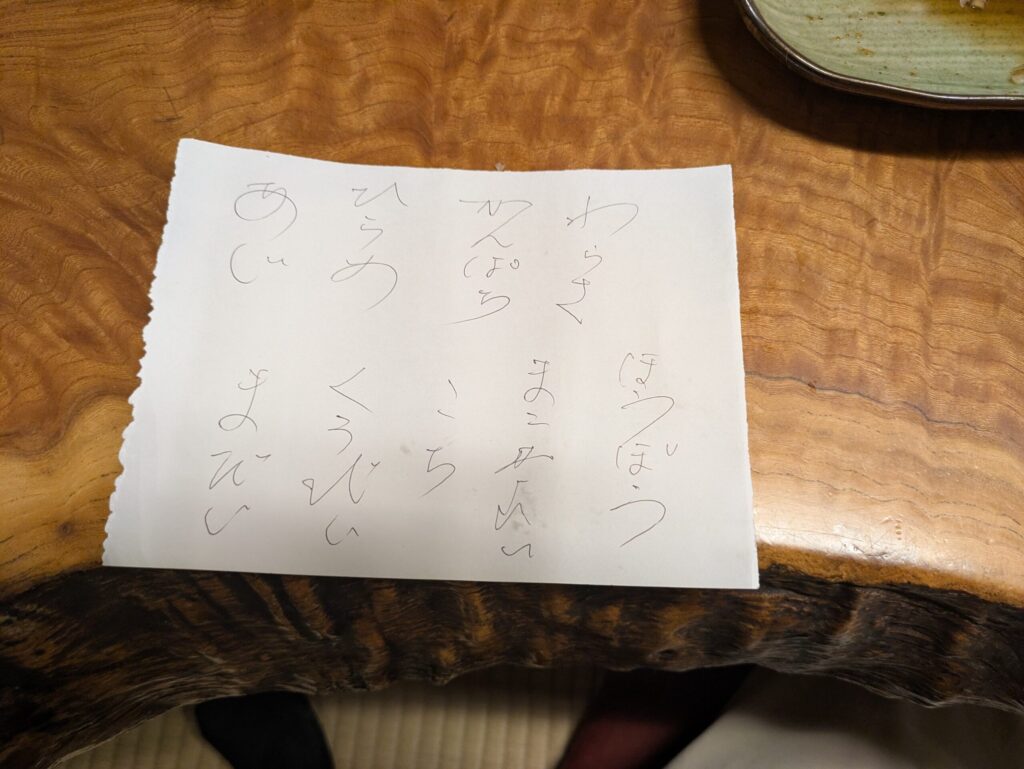 わらさ
かんぱち
ひらめ
あじ
ほうぼう
まこがれい
こち
くろだい
まだい